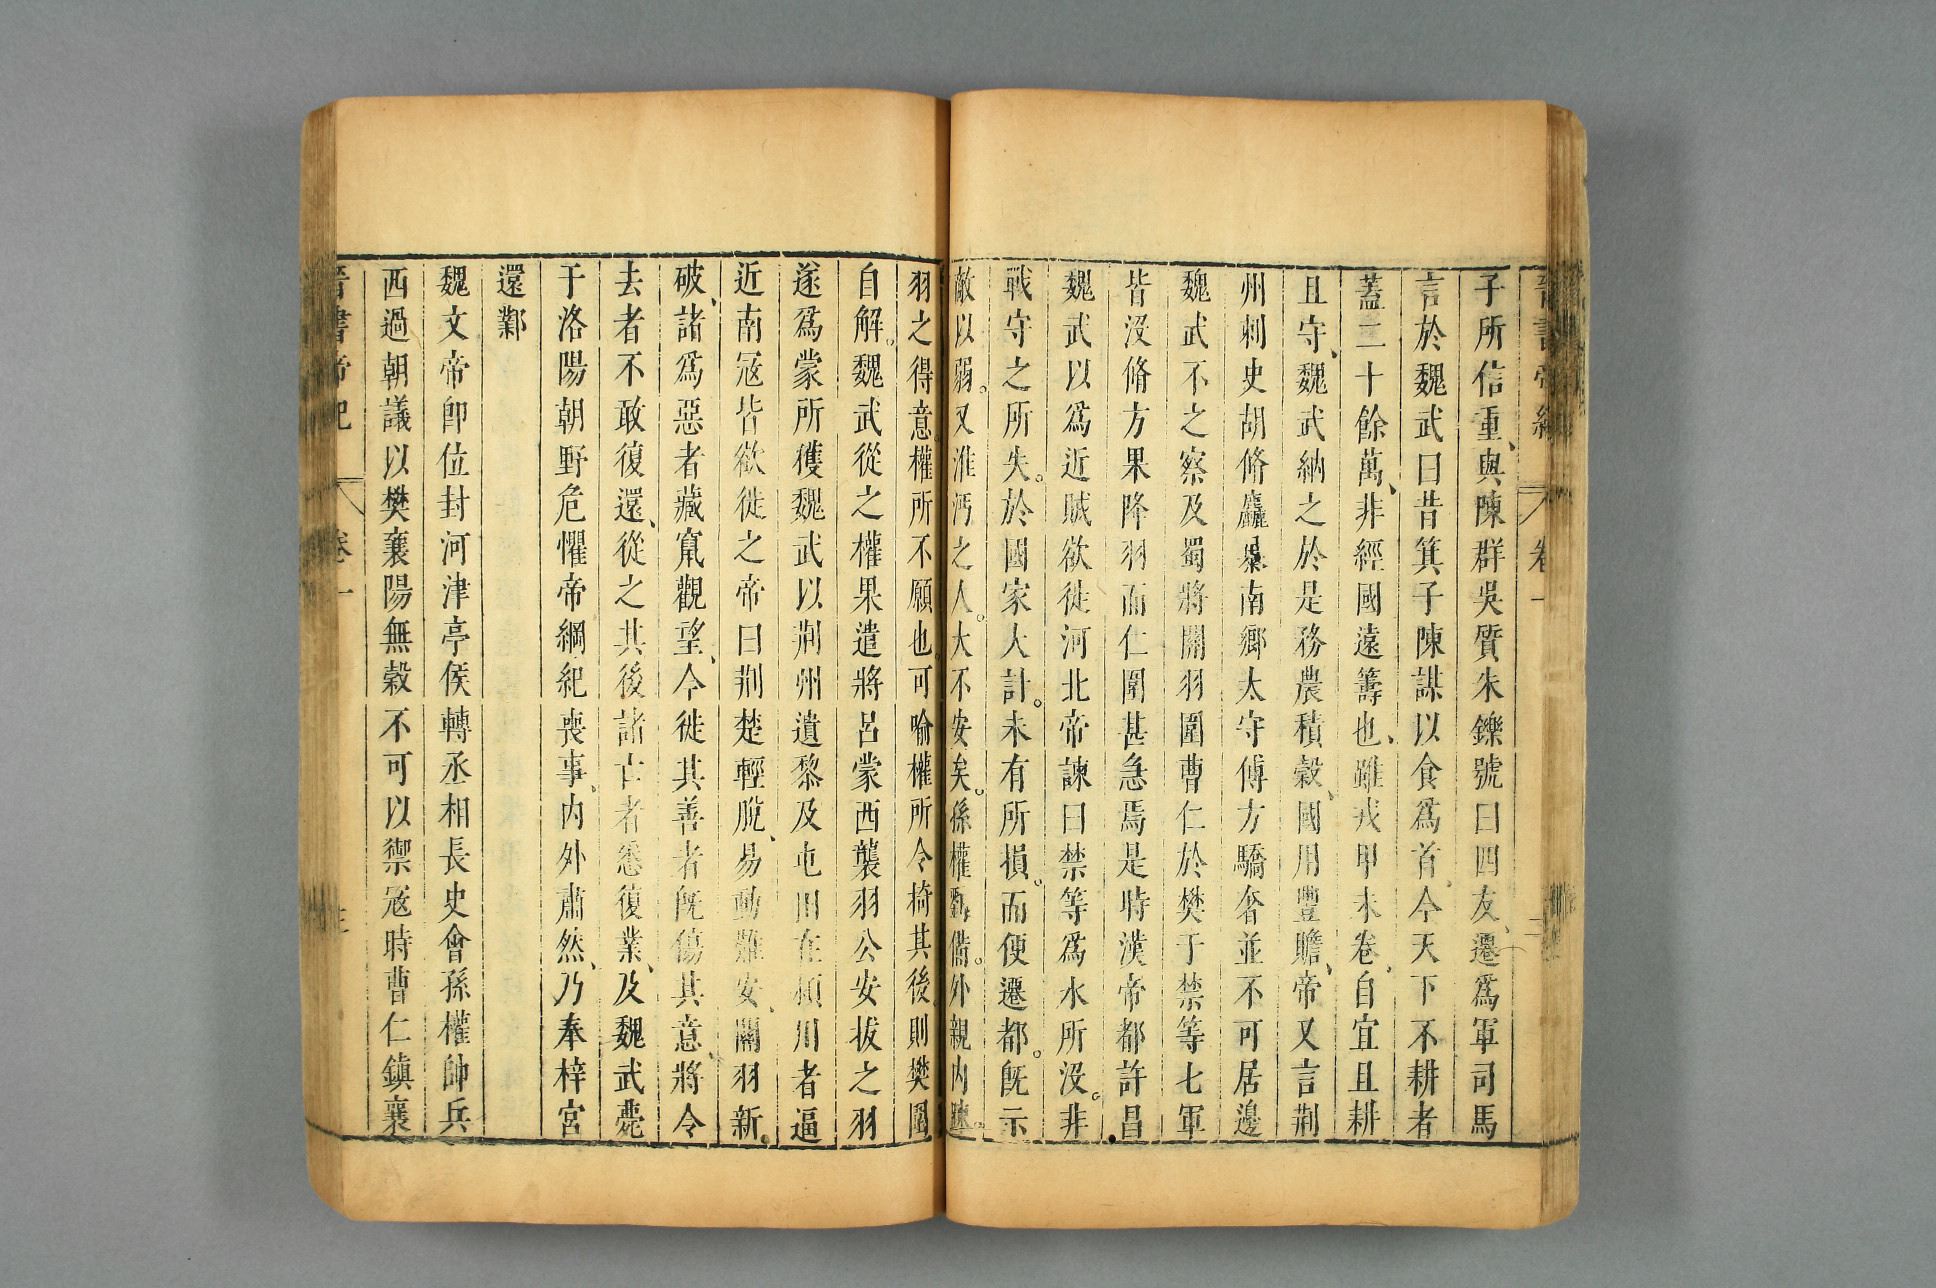 晉書帝紀 卷一
子所信重、與陳群吳質朱鑠號曰四友、遷爲軍司馬
言於魏武曰昔箕子陳謀以食爲首、今天下不耕者
蓋二十餘萬、非經國遠籌也、雖戎甲未卷、自宜且耕
且守、魏武納之於是務農積穀、國用豐贍、帝又言荆
州刺史胡脩麤暴南鄉太守傅方驕奢並不可居邊
魏武不之察及蜀將關羽圍曹仁於樊于禁等七軍
皆没脩方果降羽而仁圍甚急焉是時漢帝都許昌
魏武以爲近賊欲徙河北帝諫曰禁等爲水所没。非
戰守之所失。於國家大計。未有所損。而便遷都。旣示
敵以弱。又淮沔之人。大不安矣。孫權劉備。外親内疎。
羽之得意。權所不願也。可喻權所令掎其後、則樊圍
自解。魏武從之權果遣將呂蒙西襲羽公安拔之羽
遂爲蒙所獲魏武以荆州遺黎及屯田在潁川者逼
近南寇皆欲徙之帝曰荆楚輕脫、易動難安、關羽新
破、諸爲惡者藏竄觀望、今徙其善者旣傷其意、將令
去者不敢復還、從之其後諸亡者悉復業、及魏武薨
于洛陽朝野危懼帝綱紀喪事、内外肅然、乃奉梓宮
還鄴
魏文帝卽位封河津亭侯轉丞相長史會孫權帥兵
西過朝議以樊襄陽無穀不可以禦寇時曹仁鎮襄
晉書帝紀 卷一